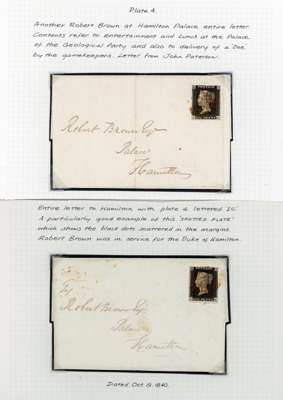 Plate 4.
Another Robert Brown at Hamilton Palace entire letter
Contents refer to entertainment and Lunch at the Palace
of the Geological Party and also to delivery of a Doe
by the gamekeepers. Letter from John Paterson.
Robert Brown Esqr
Palace
Hamilton
Entire letter to Hamilton with plate 4 lettered IC
A particularly good example of this 'SPOTTED PLATE'
which shows the black dots scattered in the margins
Robert Brown was in service for the Duke of Hamilton.
Robert Brown Esqr
Palace
Hamilton
Dated Oct 9. 1840.